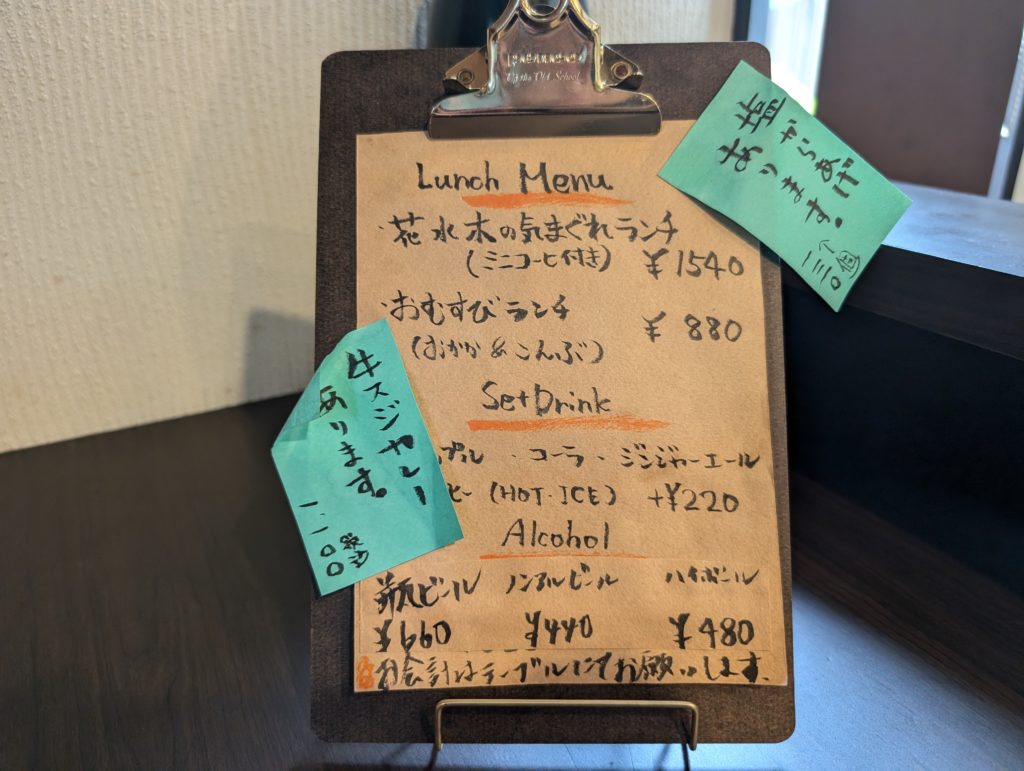 Lunch Menu
・花水木の気まぐれランチ
(ミニコーヒ付き) ¥1540
・おむすびランチ
¥880
(おかか&こんぶ)
Set Drink
プル ・コーラ・ジンジャーエール
ヒー (HOT・ICE) +¥220
Alcohol
瓶ビール ノンアルビール ハイボール
¥660 ¥440 ¥480
お会計はテーブルにてお願いします。
塩からあげ
あります。
一個
一三〇
牛スジカレー
あります。
一、一〇〇